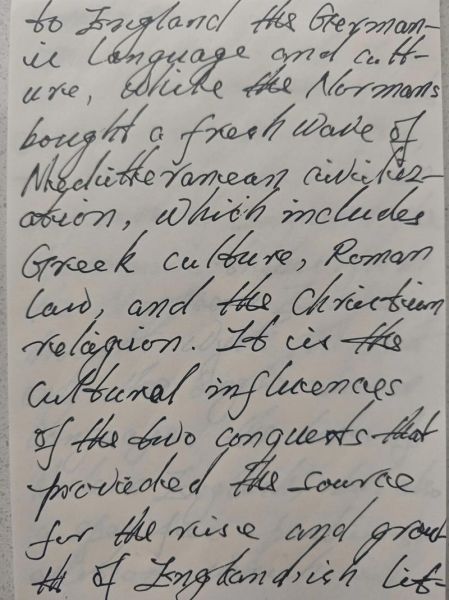 to England the German-
ic language and cult-
ure, while the Normans
bought a fresh wave of
Mediterranean civiliz-
ation, which includes
Greek culture, Roman
law, and the Christian
religion. It is the
cultural influences
of the two conquests that
provided the source
for the rise and grow-
th of Englandish lit-